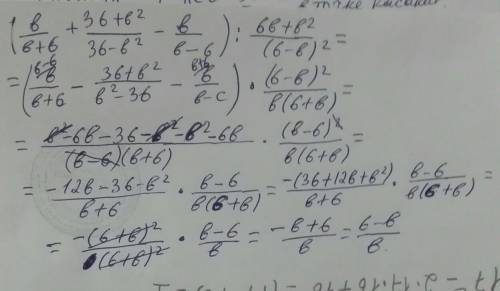 (в/(в+6) + (36+в²)/(36-в²) - в/(в-6)) : (6в+в²)/(6-в)² =
= (в^(в-6)/(в+6) - (36+в²)/(в²-36) - в/(в-с)) · (6-в)²/(в(6+в)) =
= (в²-6в-36-в²-в²-6в)/((в-6)(в+6)) · (в-6)²/(в(6+в)) =
= (-12в-36-в²)/(в+6) · (в-6)/(в(6+в)) = -(36+12в+в²)/(в+6) · (в-6)/(в(6+в)) =
= -(6+в)²/(6+в)² · (в-6)/в = (-в+6)/в = (6-в)/в.